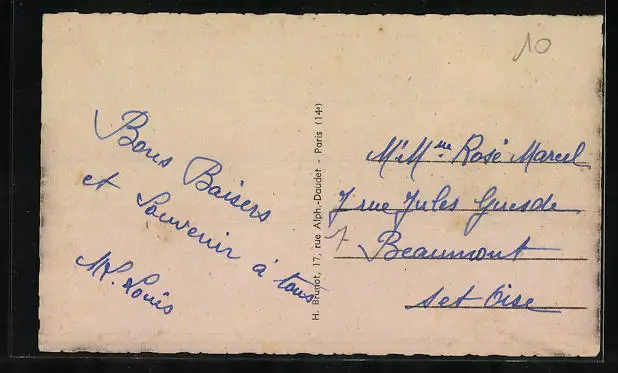 10
Bons Baisers
et Souvenir à tous
M. Louis
H. Brunot, 17, rue Alph.-Daudet - Paris (14e)
Mr Mme Rosé Marcel
7 rue Jules Guesde
7 Beaumont
S et Oise